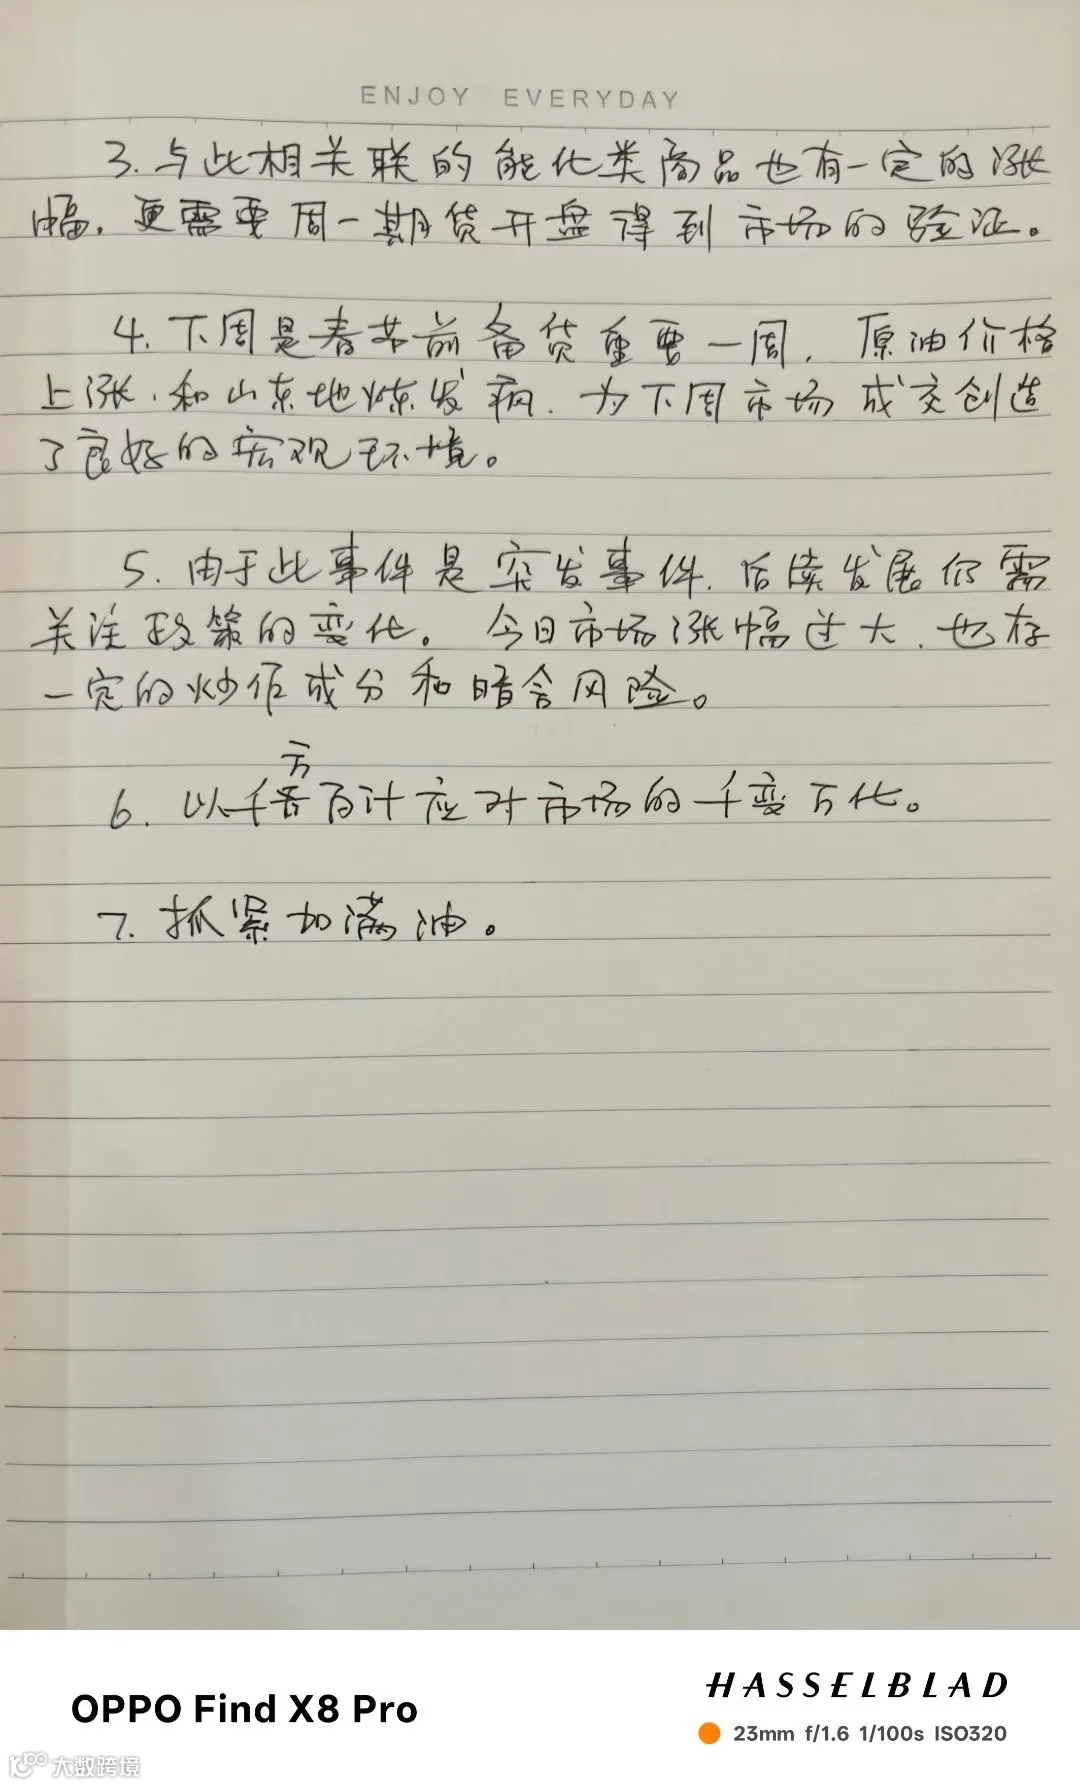 ENJOY EVERYDAY
3. 与此相关联的能化类商品也有一定的涨
幅，更需要周一期货开盘得到市场的验证。
4. 下周是春节前备货重要一周，原油价格
上涨，和山东地炼发疯，为下周市场成交创造
了良好的宏观环境。
5. 由于此事件是突发事件，后续发展仍需
关注政策的变化。今日市场涨幅过大，也存
一定的炒作成分和暗含风险。
方
6. 以千百计应对市场的千变万化。
7. 抓紧加满油。
OPPO Find X8 Pro
HASSELBLAD
23mm f/1.6 1/100s ISO320
大数跨境